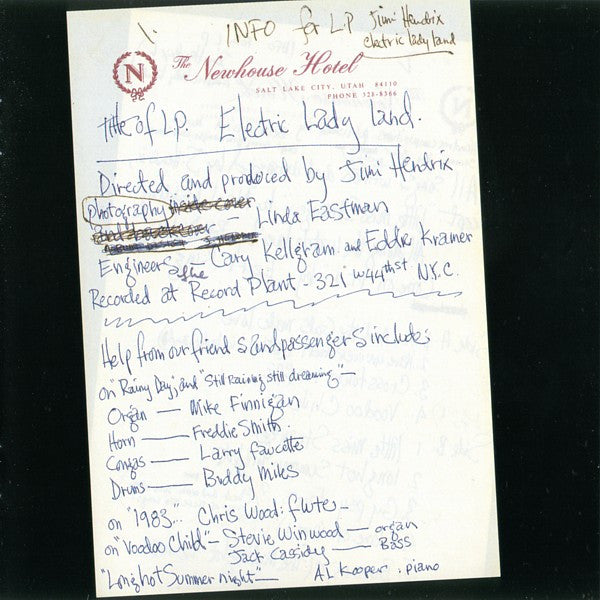 1.
INFO for LP Jimi Hendrix
electric lady land
N
The Newhouse Hotel
SALT LAKE CITY, UTAH 84110
PHONE 328-8366
title of LP. Electric Lady land.
Directed and produced by Jimi Hendrix
photography inside cover
and back cover — Linda Eastman
Engineers of the — Gary Kellgram and Eddie Kramer
Recorded at Record Plant - 321 w 44th st N.Y.C.
Help from our friends and passengers include:
on "Rainy Day," and "Still Raining still dreaming" —
Organ — Mike Finnigan
Horn — Freddie Smith.
Congas — Larry faucette
Drums — Buddy Miles
on "1983"... Chris Wood: flute —
on "Voodoo Child" — Stevie Winwood — organ
Jack Cassidy — Bass
"Long hot Summer night" — AL Kooper . piano